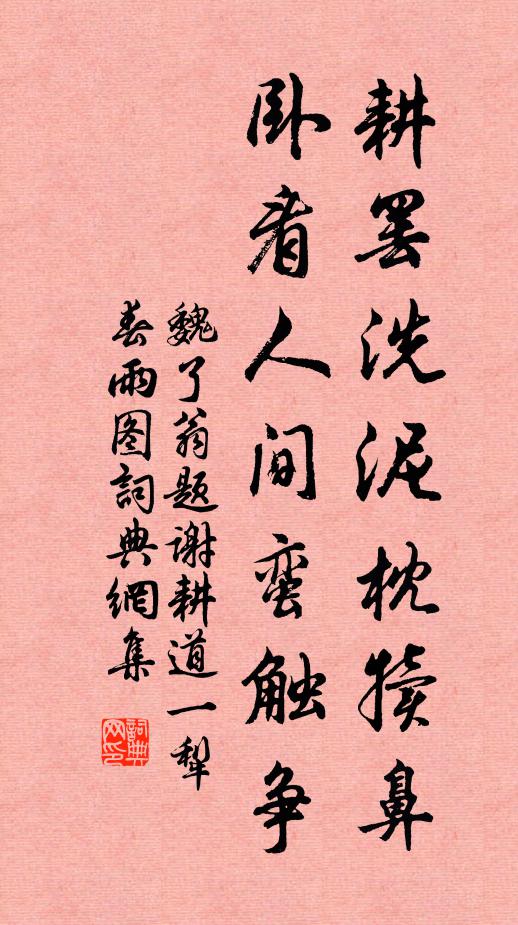 耕罢洗泥枕犊鼻
卧看人间蛮触争
魏了翁题谢耕道一犁
春雨图詞典網集
詞典
网印